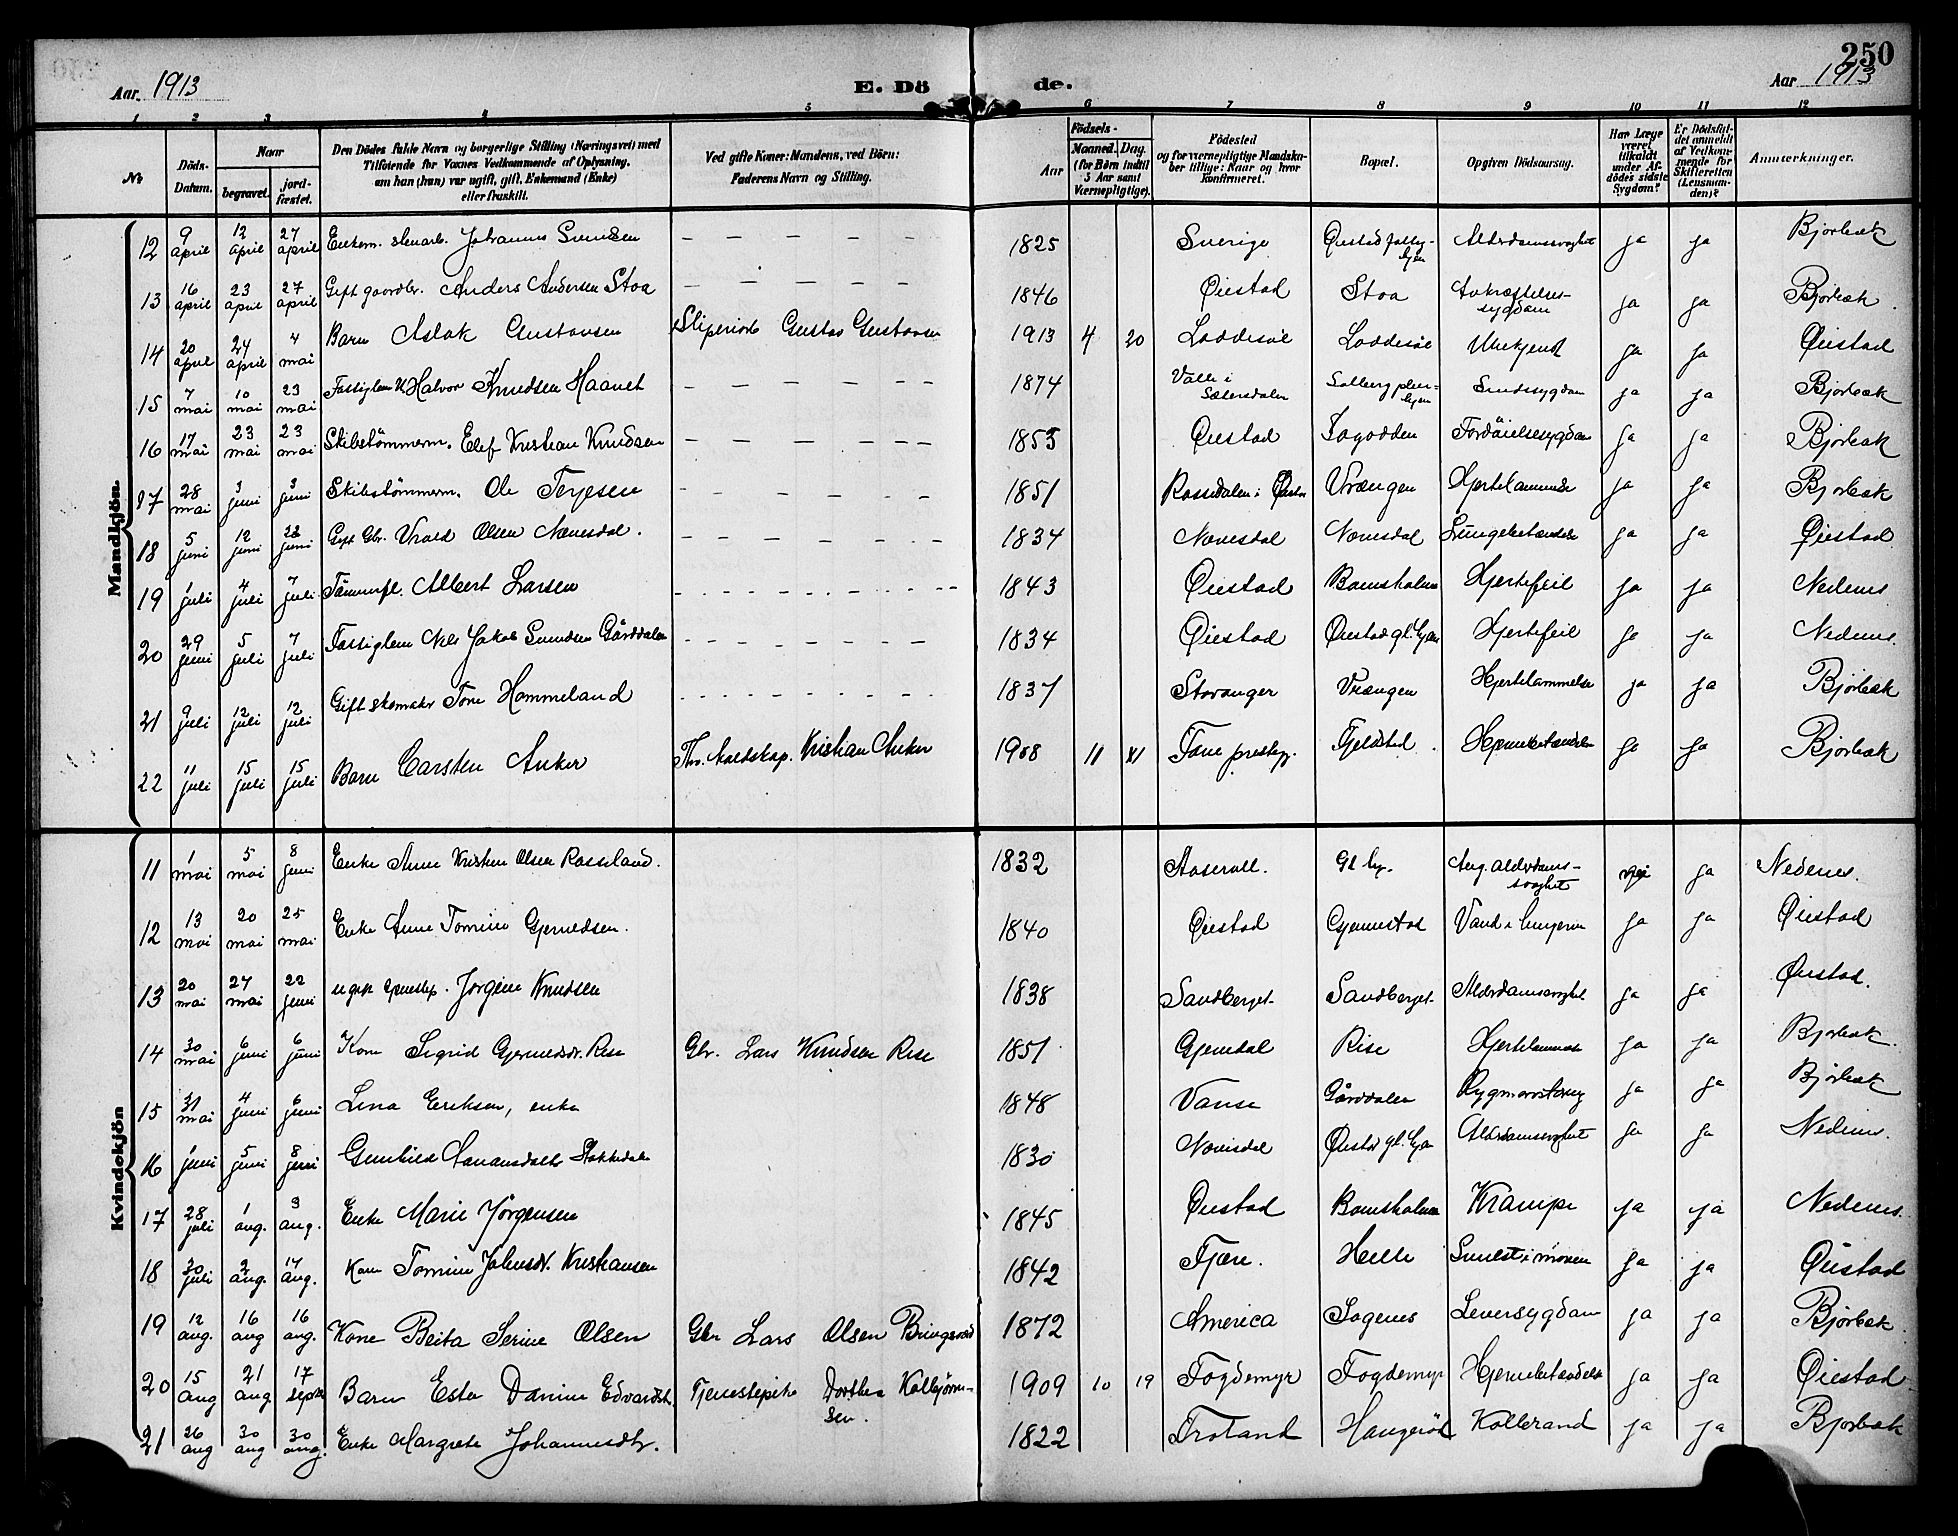 250
Aar 1913 E. Dö de. Aar 1913
1 2 3 4 5 6 7 8 9 10 11 12
No Döds-Datum. Naar begravet. jordfæstet. Den Dödes fulde Navn og borgerlige Stilling (Næringsvei) med Tilföiende for Voxnes Vedkommende af Oplysning, om han (hun) var ugift, gift, Enkemand (Enke) eller fraskilt. Ved gifte Koner: Mandens, ved Börn: Faderens Navn og Stilling. Födsels- Aar Maaned. Dag. (for Börn indtil 5 Aar samt Værnepligtige). Födested og for værnepligtige Mandskaber tillige: Naar og hvor konfirmeret. Bopæl. Opgiven Dödsaarsag. Har Læge været tilkaldt under Afdödes sidste Sygdom? Er Dödsfaldet anmeldt af Vedkommende for Skifteretten (Lensmanden)? Anmerkninger.
Mandkjön.
12 9 april 12 april 27 april Enkem. stenarb. Johannes Svendsen – – – – – 1825 Sverige Øiestad Alderdomssvaghet ja ja Bjorbæk
13 16 april 23 april 27 april Gift gaardbr. Anders Andersen Stoa – – – – – 1846 Øiestad Stoa sygdom ja ja Bjorbæk
14 20 april 24 april 4 mai Barn Aslak Gustavsen Gustav Gustavsen 1913 4 20 Loddesøl Loddesøl Ukekjendt ja ja Øiestad
15 7 mai 10 mai 23 mai Fattiglem Halvor Knudsen Haavet – – – – – 1874 Valle i Sætersdalen ja ja Bjorbæk
16 17 mai 23 mai 23 mai Skibstömmerm. Elef Kristian Knudsen – – – – – 1853 Øiestad Sagodden ja ja Bjorbæk
17 28 mai 3 juni 3 juni Skibstömmerm. Ole Terjesen – – – – – 1851 Rossedalen i Øiestad Vrængen Hjertelammelse ja ja Bjorbæk
18 5 juni 12 juni 22 juni Gift Gbr. Olsen Nævesdal. – – – – – 1834 Nævesdal Nævesdal Lungebetændelse ja ja Øiestad
19 1 juli 4 juli 7 juli Albert Larsen 1843 Øiestad Bomsholmen Hjertefeil ja ja Nedenes
20 29 juni 5 juli 7 juli Fattiglem Nils Jakob Svendsen Gårddalen – – – – – 1834 Øiestad Øiestad gl. hjem Hjertefeil ja ja Nedenes.
21 9 juli 12 juli 12 juli Gift skomaker Tore Hommeland 1837 Stavanger Vrængen Hjertelammelse ja ja Bjorbæk
22 11 juli 15 juli 15 juli Barn Carsten Anker Kristian Anker 1908 11 Fane prestegj. Fjeldsted Hjernebetændelse ja ja Bjorbæk
Kvindekjön
11 1 mai 5 mai 8 juni Enke Anne Olsen Rosseland. 1832 Aaserall. Gl. hj. Alderdomssvaghet nei ja Nedenes.
12 13 mai 20 mai 25 mai Enke Anne Tomine Gjermundsen. 1840 Øiestad Vand i lungerne ja ja Øiestad
13 20 mai 27 mai 22 juni ugift Jørgine Knudsen 1838 Sandberget. Sandberget. Alderdomssvaghet. ja ja Øiestad.
14 30 mai 6 juni 6 juni Kone Sigrid Gjermundsdr. Rise Gbr. Lars Knudsen Rise 1851 Gjervedal Rise Hjertelammelse ja ja Bjorbæk.
15 31 mai 4 juni 6 juni Lina Eriksen, enke 1848 Vanse Gårddalen Rygmarvstæring ja ja Bjorbæk
16 1 juni 5 juni 8 juni Gunhild 1830 Nævesdal Øiestad gl. hjem Alderdomssvaghet ja ja Nedenes.
17 28 juli 1 aug. 3 aug. Enke Marie Jørgensen 1845 Øiestad Bomsholmen Krampe ja ja Nedenes.
18 30 juli 2 aug. 17 aug. Kone Tomine Kristiansen 1842 Fjære. Helle ja ja Øiestad
19 12 aug. 16 aug 16 aug. Kone Berta Serine Olsen Gbr Lars Olsen Bringsvær 1872 America Sagenes Leversygdom ja ja Bjorbæk.
20 15 aug 21 aug 17 septbr Barn Ester Danine Edvardsdr. Tjenestepike Dorthea Kolbjørnsen. 1909 10 19 Fogdemyr Fogdemyr Hjernebetændelse ja ja Øiestad
21 26 aug 30 aug 30 aug. Enke Margrete Johannesdtr. 1822 Froland Haugerød Koldbrand ja ja Bjorbæk